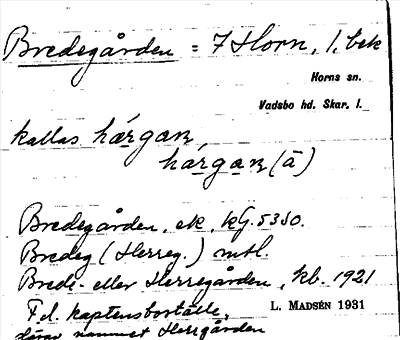 Bredegården = 7 Horn, 1. bek
Horns sn.
Vadsbo hd. Skar. l.
kallas hárgaɴ,
hárgaɴ (ā)
Bredegården, ek, kG. 5350.
Bredeg (Herreg.) mtl.
Brede- eller Herregården, kb. 1921
Fd. kaptensboställe,
L. MADSÉN 1931
därav namnet Herrgården